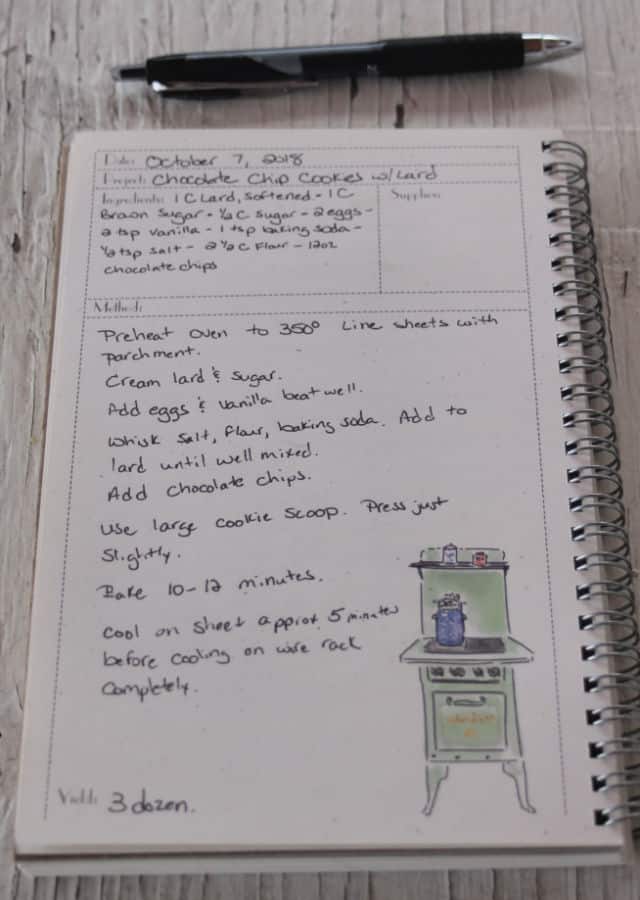 Date: October 7, 2018
Project: Chocolate Chip Cookies w/Lard
Ingredients: 1 C Lard, Softened - 1 C
Brown Sugar - 1/2 C Sugar - 2 eggs -
2 tsp Vanilla - 1 tsp baking soda -
1/2 tsp Salt - 2 1/2 C Flour - 12oz
chocolate chips
Supplies:
Method:
Preheat oven to 350° Line sheets with
parchment.
Cream lard & sugar.
Add eggs & vanilla beat well.
Whisk salt, flour, baking soda. Add to
lard until well mixed.
Add chocolate chips.
Use large cookie scoop. Press just
slightly.
Bake 10-12 minutes.
Cool on sheet approx 5 minutes
before cooling on wire rack
completely.
Yield: 3 dozen.